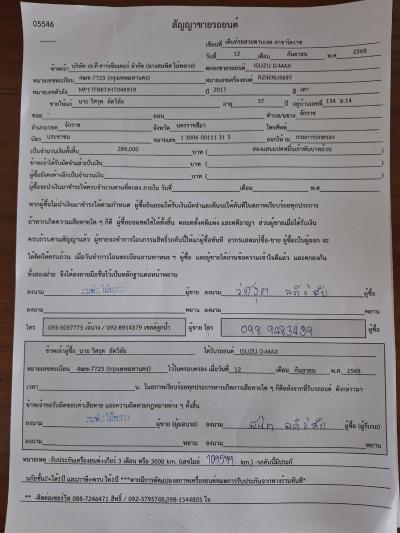 05546
สัญญาขายรถยนต์
เขียนที่ เต็นท์รถสวยตามเจต สาขาโคราช
วันที่ 12 เดือน กันยายน พ.ศ. 2568
ข้าพเจ้า บริษัท เจ.ที.คาร์เซ็นเตอร์ จำกัด (นางสมพิศ ไม้พลวง) ตกลงขายรถยนต์ ISUZU D-MAX
หมายเลขทะเบียน 4ฒฆ-7723 (กรุงเทพมหานคร) หมายเลขเครื่องยนต์ RZ4ERU5697
หมายเลขตัวถัง MP1TFR87JHT048918 ปี 2017 สี เทา
ขายให้แก่ นาย วิศรุต ลัดวิลัย อายุ 37 ปี อยู่บ้านเลขที่ 134 ม.14
ซอย - ถนน - ตำบล/แขวง จักราช
อำเภอ/เขต จักราช จังหวัด นครราชสีมา โทรศัพท์
บัตร ประชาชน หมายเลข 1 3006 00111 31 3 ออกให้ ณ กรมการปกครอง
เป็นจำนวนเงินทั้งสิ้น 289,000 บาท (สองแสนแปดหมื่นเก้าพันบาทถ้วน)
ข้าพเจ้าได้รับมัดจำแล้วเป็นเงิน บาท ( )
ผู้ซื้อยังคงค้างอีกเป็นจำนวนเงิน บาท ( )
ผู้ซื้อจะนำเงินมาชำระให้ครบจำนวนตามที่ตกลง ภายใน วันที่ เดือน พ.ศ.
หากผู้ซื้อไม่นำเงินมาชำระให้ตามกำหนด ผู้ซื้อยินยอมให้ริบเงินมัดจำและคืนรถให้ทันทีในสภาพเรียบร้อยทุกประการ
ถ้าหากเกิดความเสียหายใด ๆ ก็ดี ผู้ซื้อยอมชดใช้ให้ทั้งสิ้น ตลอดทั้งคดีแพ่ง และคดีอาญา ส่วนผู้ขายเมื่อได้รับเงิน
ครบถ้วนตามสัญญาแล้ว ผู้ขายจะทำการโอนกรรมสิทธิ์รถคันนี้ให้แก่ผู้ซื้อทันที
ทั้งสองฝ่าย จึงได้ลงลายมือชื่อไว้เป็นหลักฐานต่อหน้าพยาน
ลงนาม ผู้ขาย ลงนาม วิศรุต ลัดวิลัย ผู้ซื้อ
ลงนาม พยาน ลงนาม พยาน
โทร 093-5037775 เจ๊นาง / 092-8914379 ผู้ขาย โทร 098 9483439 ผู้ซื้อ
ข้าพเจ้าผู้ซื้อ นาย วิศรุต ลัดวิลัย ได้รับรถยนต์ ISUZU D-MAX
หมายเลขทะเบียน 4ฒฆ-7723 (กรุงเทพมหานคร) ไว้ในครอบครอง เมื่อวันที่ 12 เดือน กันยายน พ.ศ. 2568
เวลา น. ในสภาพเรียบร้อยทุกประการหากเกิดการเสียหายใด ๆ ก็ดีหลังจากที่รับรถยนต์ ดังกล่าวมา
ข้าพเจ้าจะรับผิดชอบค่าเสียหาย และความผิดตามกฎหมายต่าง ๆ ทั้งสิ้น
ลงนาม ผู้ขาย (ผู้มอบรถ) ลงนาม ผู้ซื้อ (ผู้รับรถ)
ลงนาม พยาน ลงนาม พยาน
หมายเหตุ -รับประกันเครื่องยนต์+เกียร์ 3 เดือน หรือ 3000 km. (เลขไมล์ km.) -รถคันนี้มีประกั
นภัยชั้น2+ให้1ปี และภาษี+พรบ.ให้1ปี ***หากมีการดัดแปลงสภาพเครื่องยนต์หมดการรับประกันจากทางร้านทันที*
** -ติดต่อเซอร์วิส 088-7246471 สิทธิ์ / 092-3795748,098-1544805 โจ